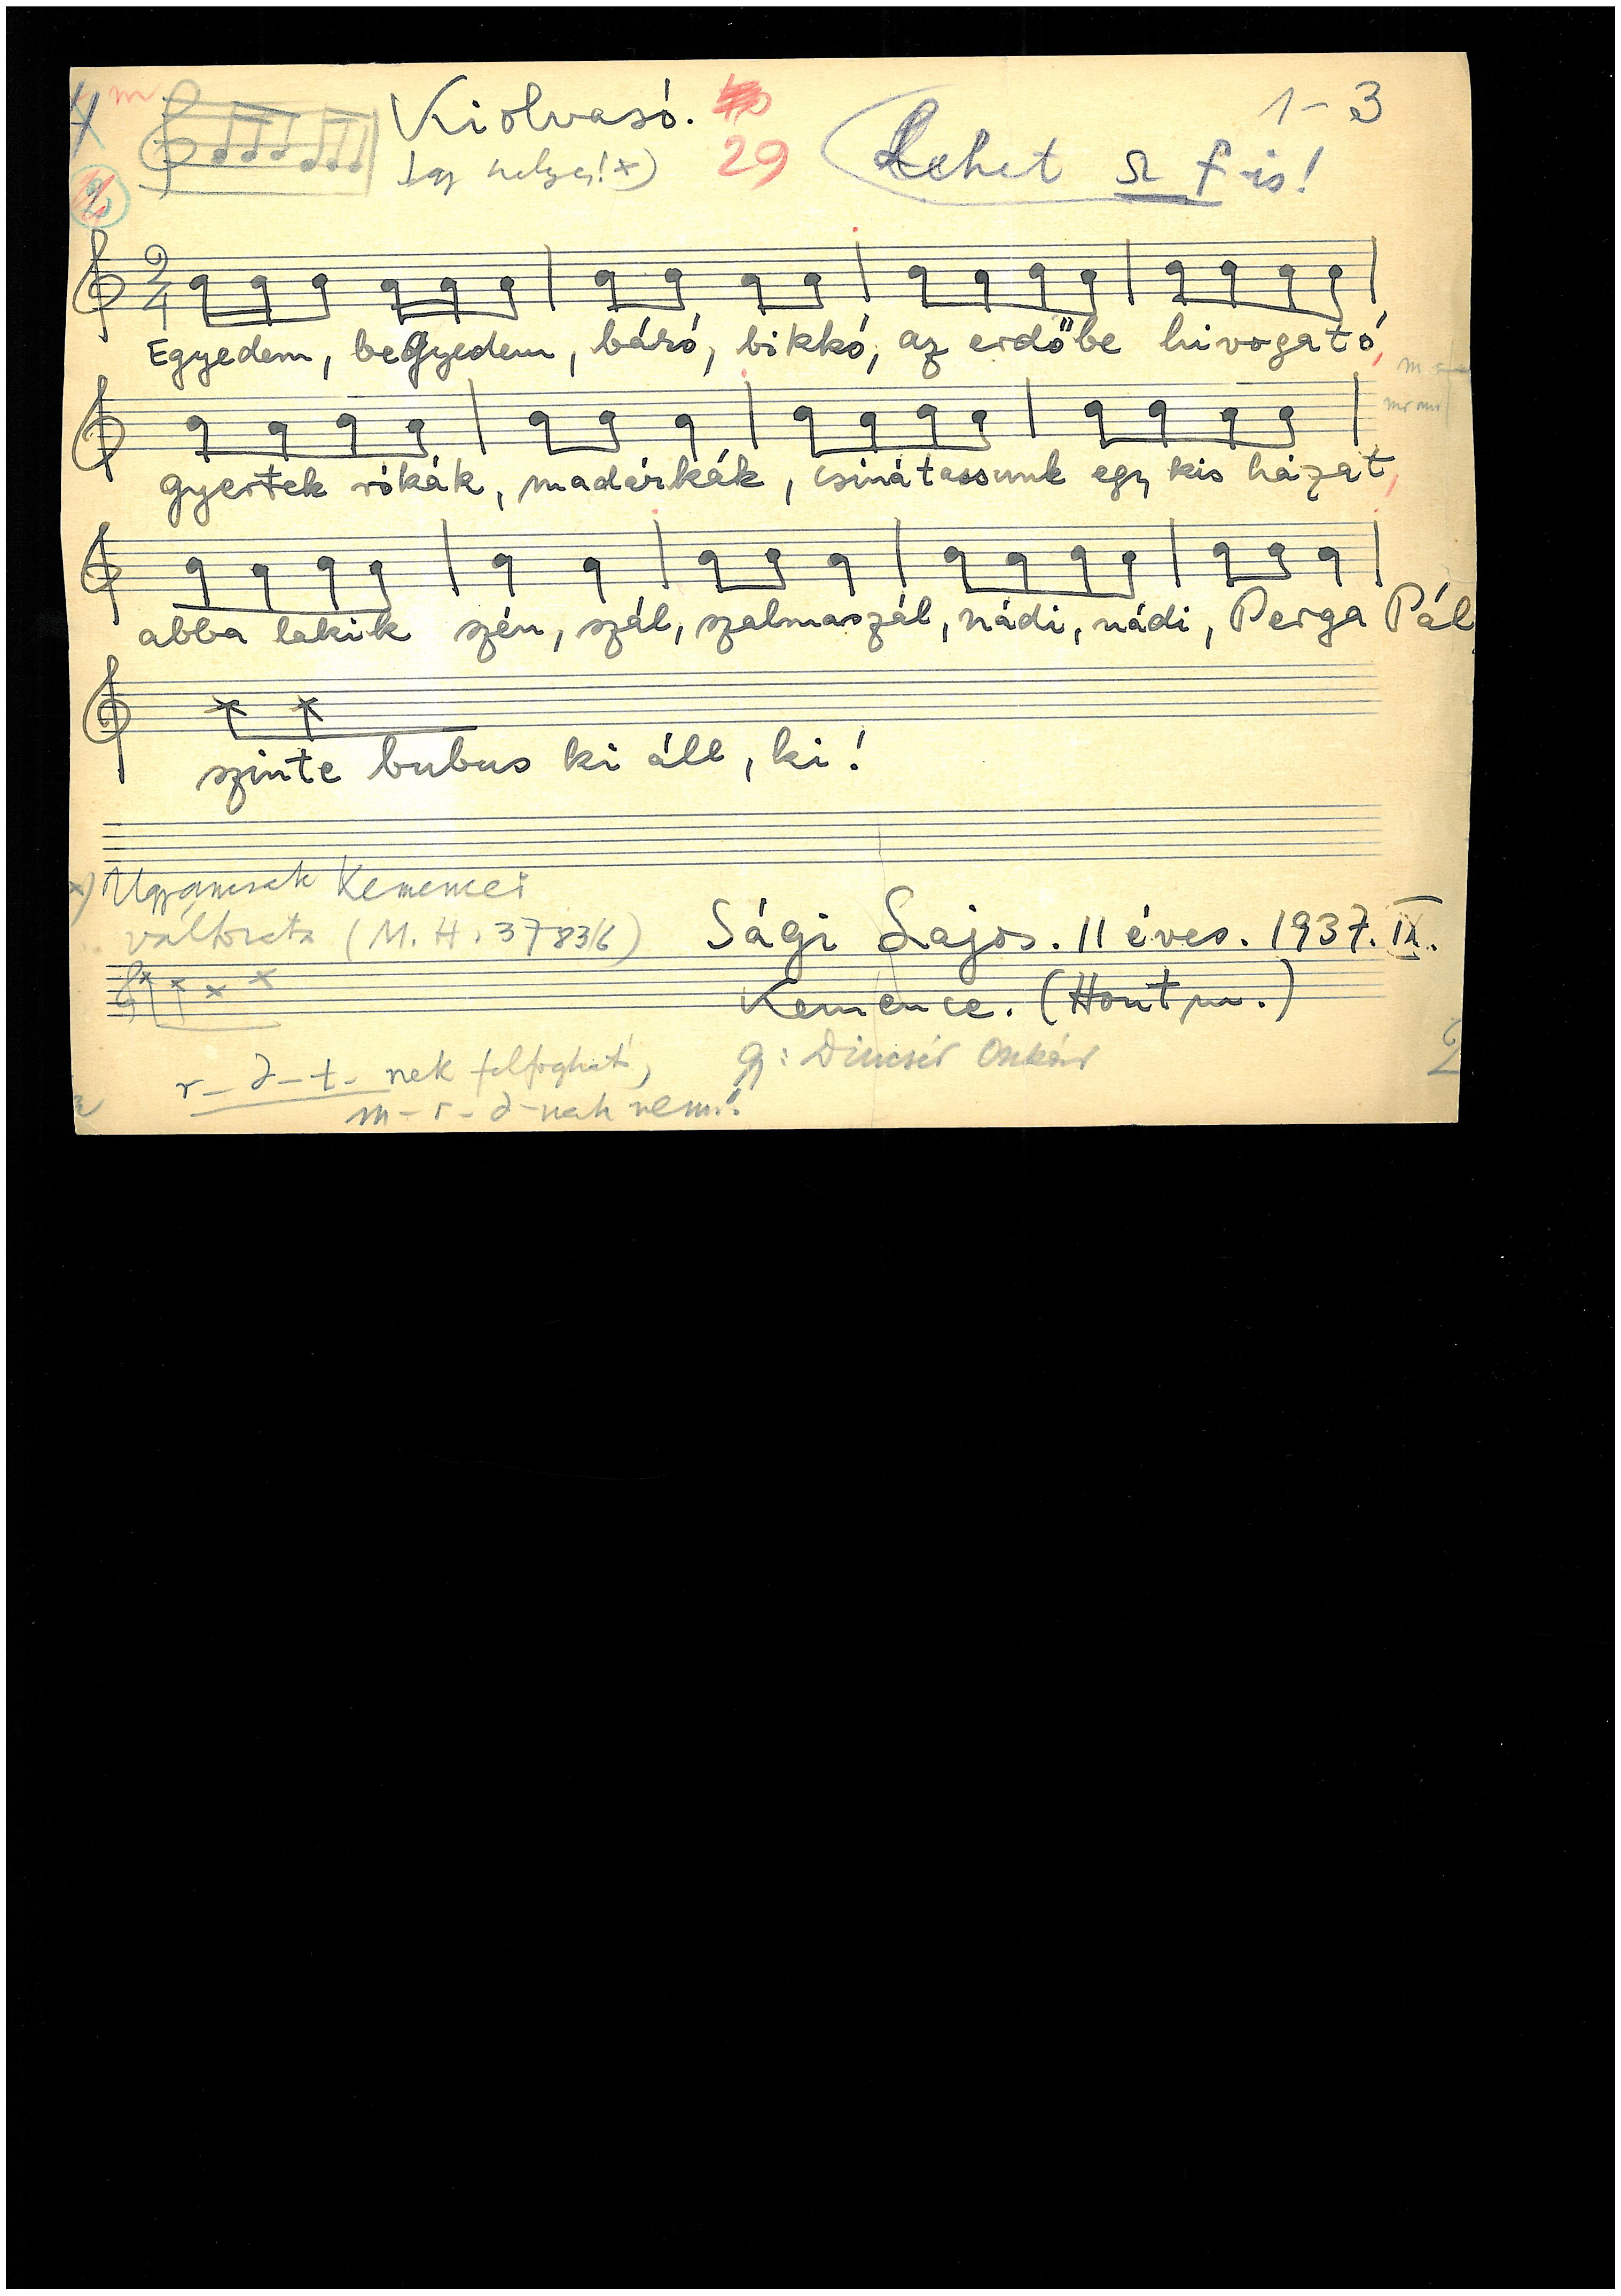 Kiolvasó.
1-3
Igy helyes! x)
29
Lehet s f-is!
2
4
Egyedem, begyedem, báró, bikkó, az erdőbe hivogató,
gyertek rókák, madárkák, csinátassunk egy kis házat,
abba lakik szén, szál, szalmaszál, nádi, nádi, Perga Pál
szinte bubus ki áll, ki!
x) Ugyancsak Kemencei
változata (M. H. 3783/6)
Sági Lajos. 11 éves. 1937. IX.
Kemence. (Hont m.)
r-d-t-nek felfogható,
gy: Dincsér Oszkár
m-r-d-nak nem!
2